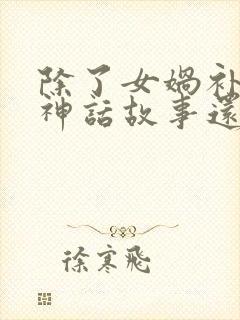 除了女媧補
神話故事還
徐寒飛